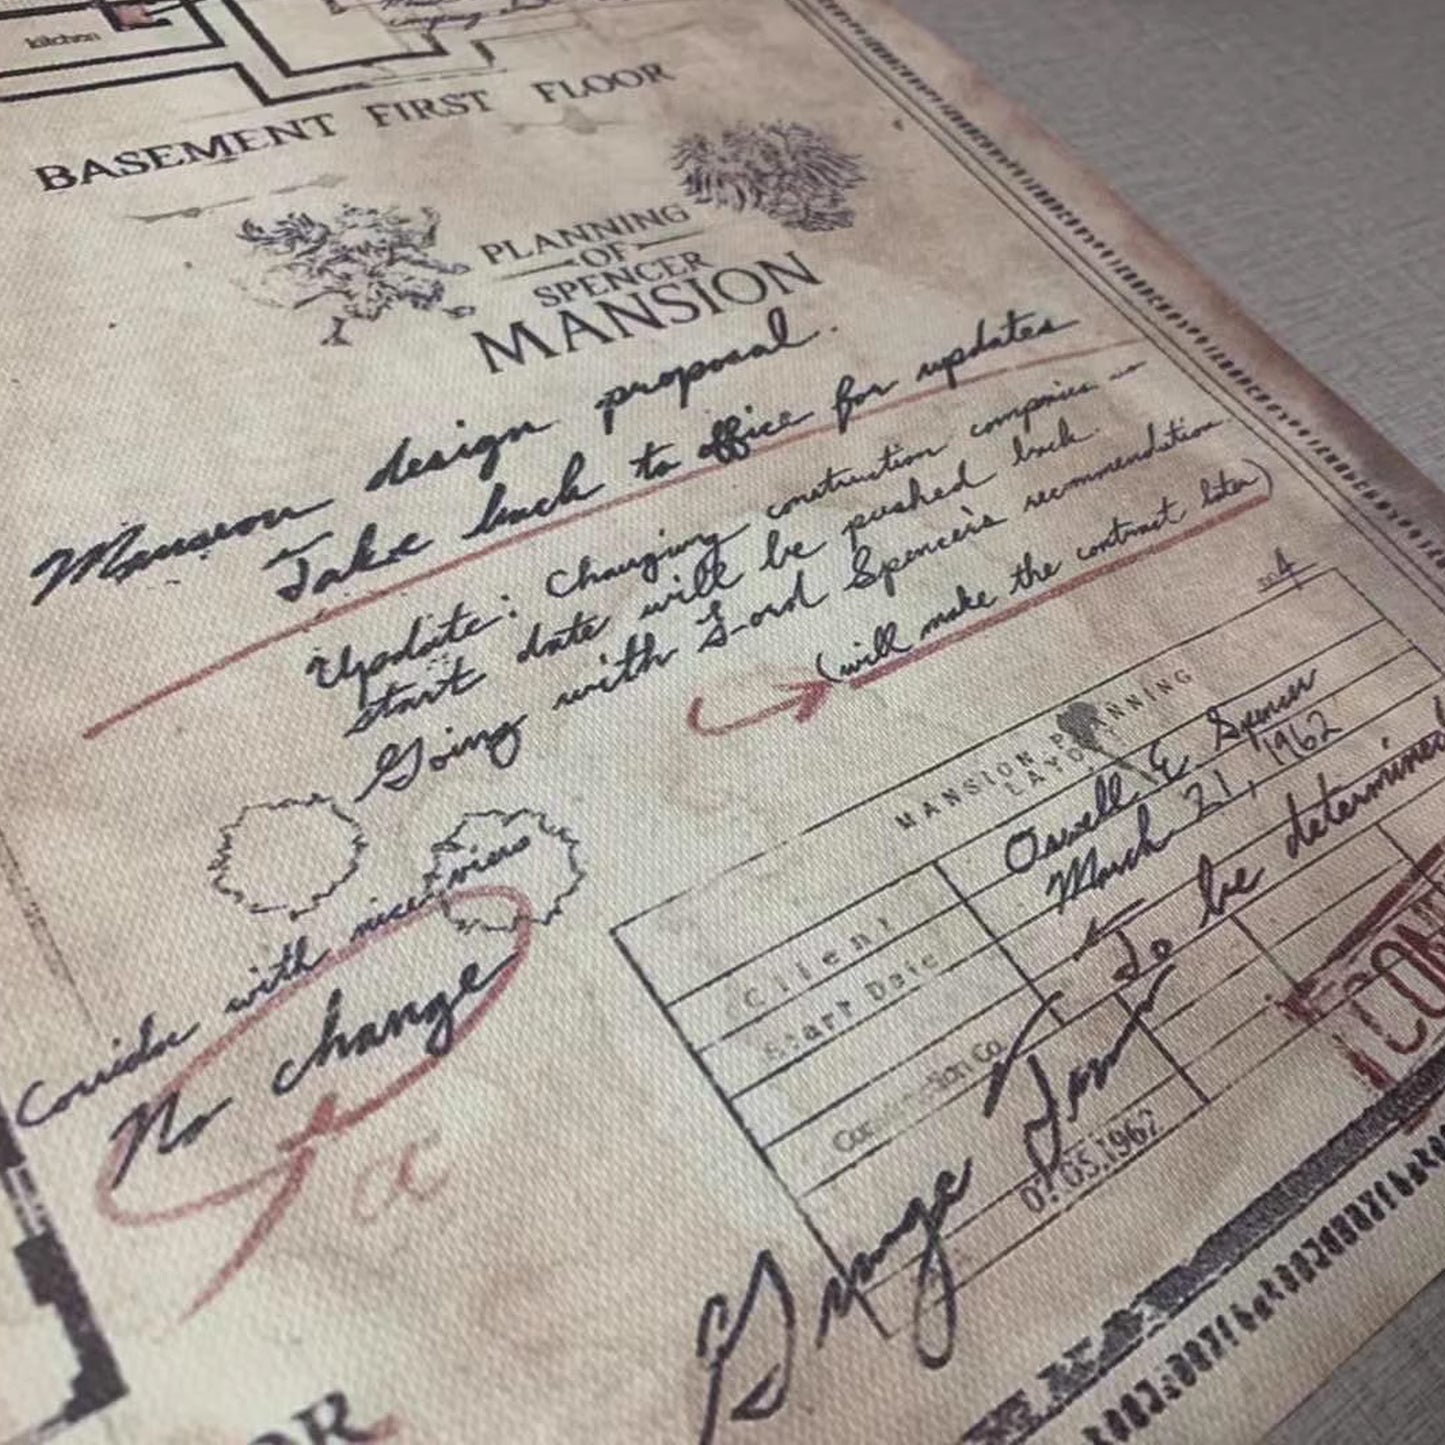 kitchen
BASEMENT FIRST FLOOR
PLANNING
OF
SPENCER
MANSION
Mansion design proposal.
Take back to office for updates
Update: Changing construction companies so
start date will be pushed back.
Going with Lord Spencer's recommendation
(will make the contract later)
4
MANSION PLANNING
LAYOUT
Client Oswell E Spencer
Start Date March 21, 1962
Construction Co. To be determined
Corridor with nice view
No change
05.1962
George Trevor